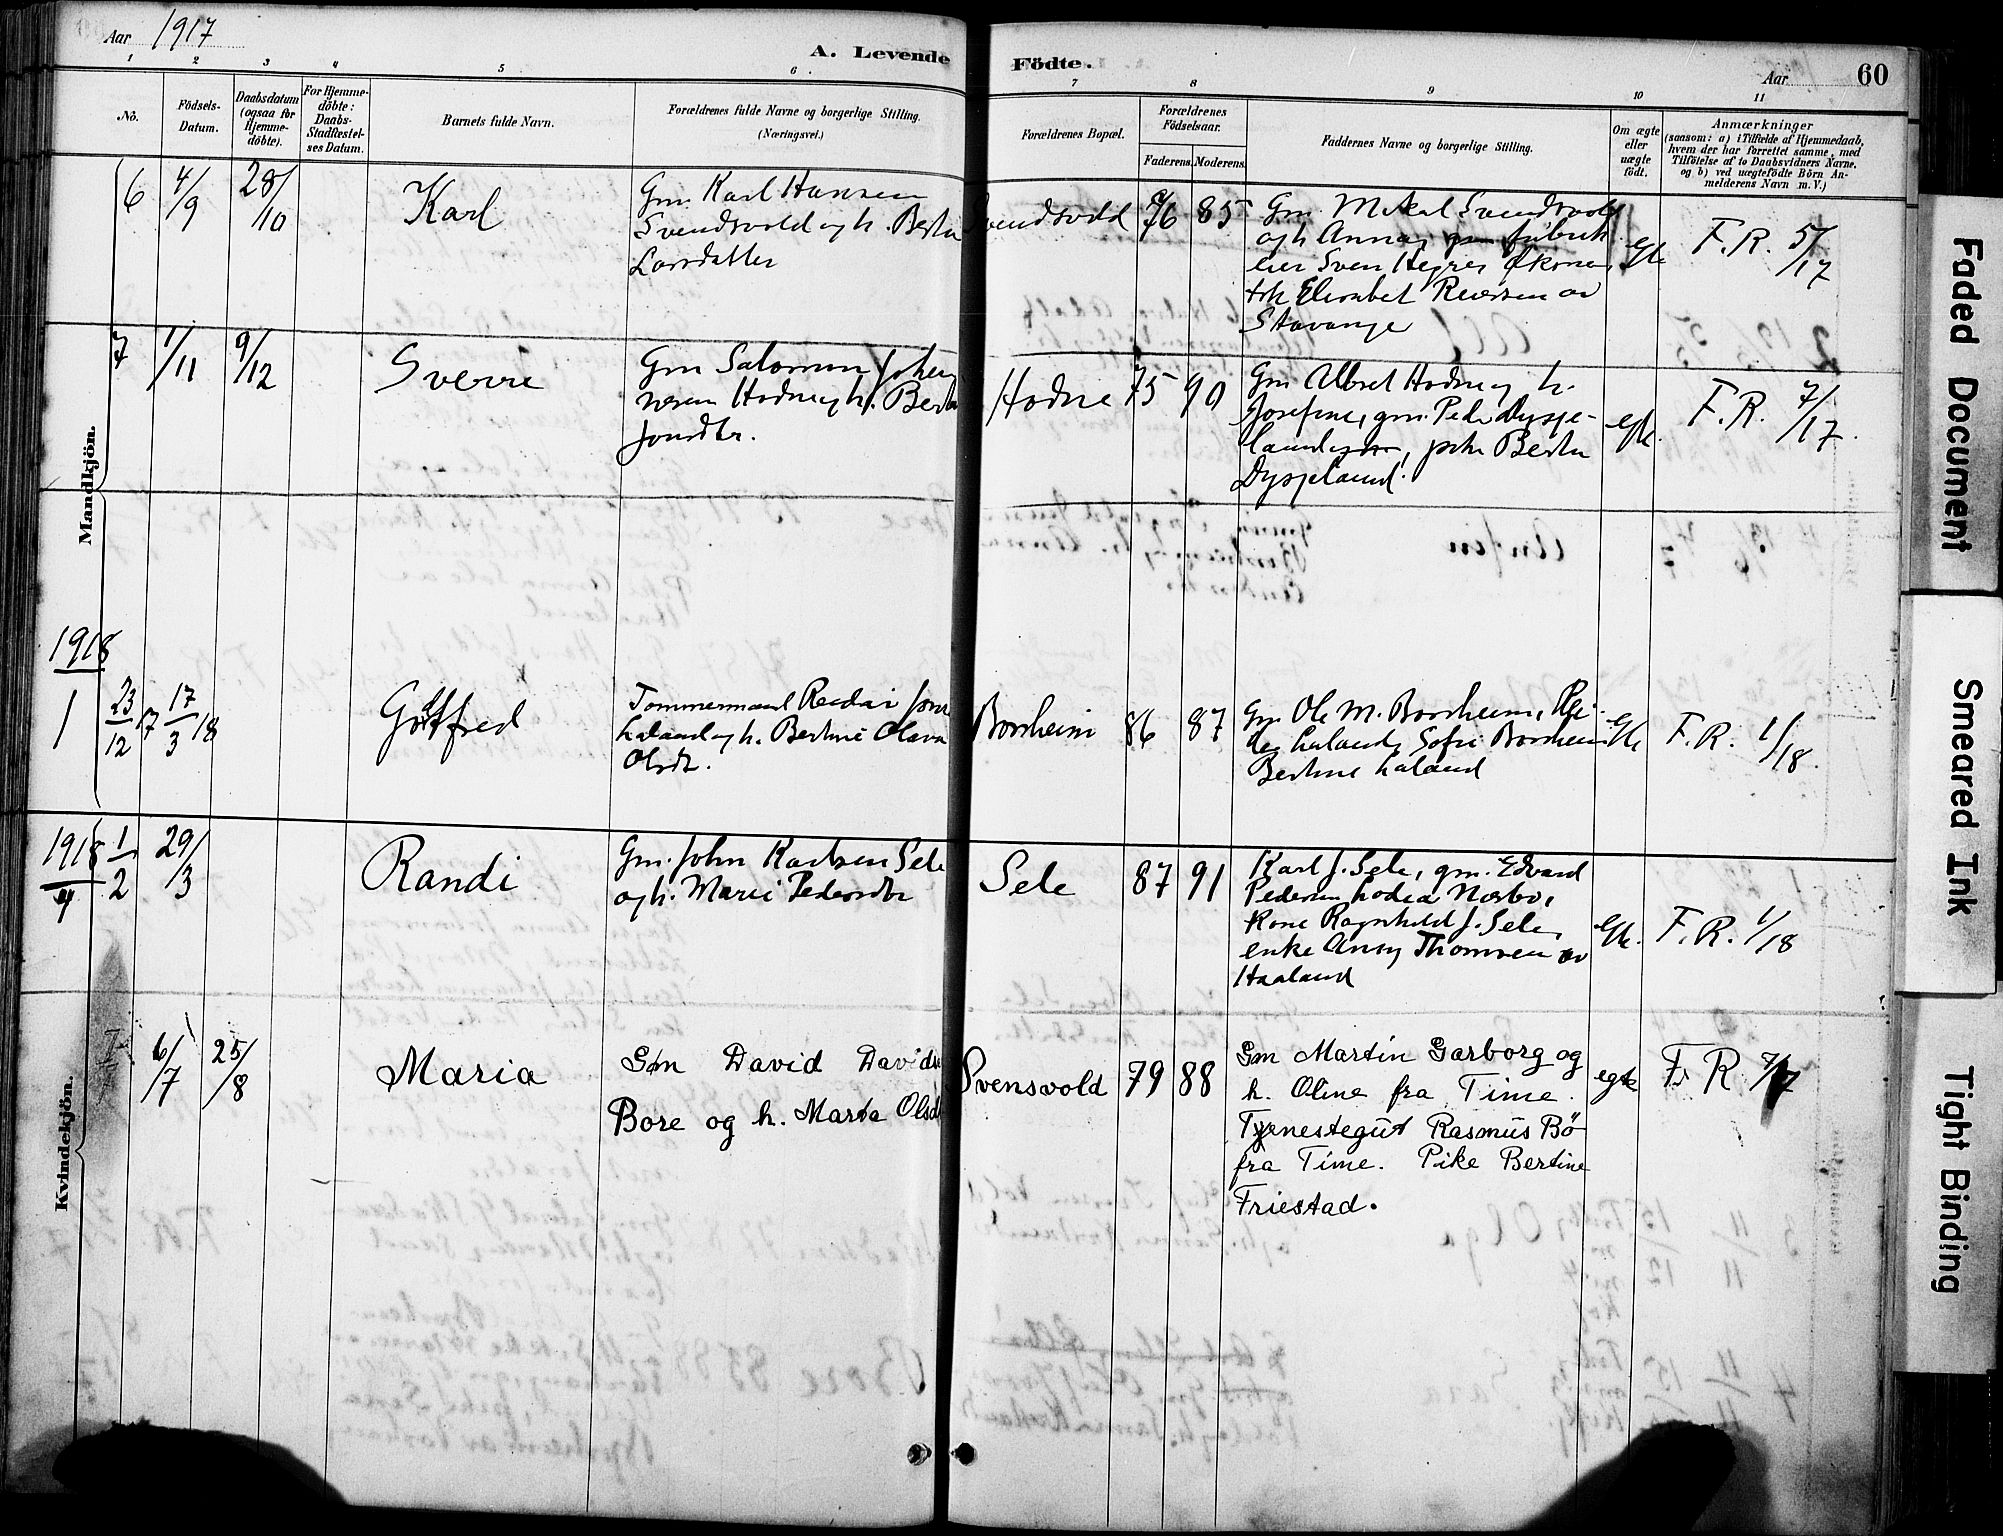 Aar 1917
A. Levende Födte.
Aar 60
1 2 3 4 5 6 7 8 9 10 11
No.
Födsels-Datum.
Daabsdatum (ogsaa for Hjemme-döbte).
For Hjemme-döbte: Daabs-Stadfæstel-ses Datum.
Barnets fulde Navn.
Forældrenes fulde Navne og borgerlige Stilling. (Næringsvei.)
Forældrenes Bopæl.
Forældrenes Födselsaar.
Faderens. Moderens.
Faddernes Navne og borgerlige Stilling.
Om ægte eller uægte födt.
Anmærkninger
(saasom: a) i Tilfælde af Hjemmedaab,
hvem der har forrettet samme, med
Tilföielse af to Daabsvidners Navne,
og b) ved uægtefödte Börn An-
melderens Navn m. V.)
Mandkjön.
6 4/9 28/10 Karl
Gm. Karl Hansen
Svendsvold og h. Berta
Larsdatter
Svendsvold 76 85
Gm. Mikal Svendsvold
og h. Anna, fabrik
eier Sven Hegre,
Elisabet av
Stavange
egte F. R. 5/17
7 1/11 9/12 Sverre
Gm Salomon
Hodne og h. Berta
Jonsdtr.
Hodne 75 90
Gm Hodne og h.
Josefine, gm. Peder Dysje-
land, pike Berta
Dysjeland.
egte. F. R. 7/17.
1918
1 23/12 17 17/3 18 Gottfred
Tømmermand Reidar
Laland og h. Bertine Olava
Olsdtr.
Borsheim 86 87
Gm. Ole M. Borsheim,
Laland, Sofie Borsheim
Bertine Laland
egte F. R. 1/18.
1918 1/2 29/3 Randi
Gm. John Karlsen Sele
og h. Marie Pedersdtr
Sele 87 91
Karl J. Sele, gm. Edvard
Pedersen Lodea Nærbø,
Kone Ragnhild J. Sele,
enke Anny Thomsen av
Haaland
egte. F. R. 1/18
Kvindekjön.
6/7 25/8 Maria
Gm David Davids
Bore og h. Marta Olsd
Svensvold 79 88
Gm Martin Garborg og
h. Oline fra Time.
Tjenestegut Rasmus Bö
fra Time. Pike Bertine
Friestad.
egte F. R
Faded Document
Smeared Ink
Tight Binding